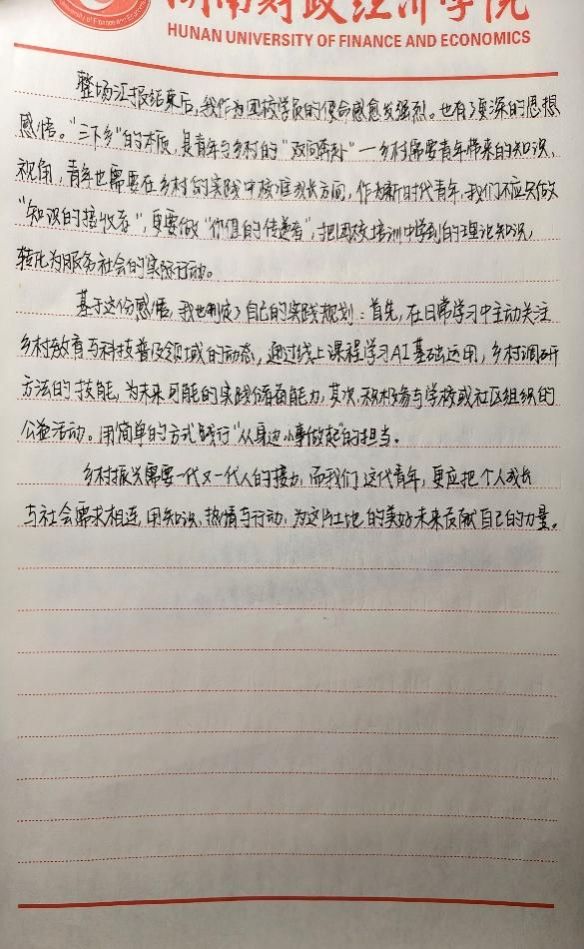 湖南财政经济学院
HUNAN UNIVERSITY OF FINANCE AND ECONOMICS
整场汇报结束后，我作为团校学员的使命感愈发强烈。也有了更深的思想
感悟。"三下乡"的本质，是青年与乡村的"双向奔赴"—乡村需要青年带来的知识，
视角，青年也需要在乡村的实践中校准成长方向，作为新时代青年，我们不应只做
"知识的接收者"，更要做"价值的传递者"，把团校培训中学到的理论知识，
转化为服务社会的实际行动。
基于这份感悟，我也制定了自己的实践规划：首先，在日常学习中主动关注
乡村教育与科技普及领域的动态，通过线上课程学习AI基础运用，乡村调研
方法的技能，为未来可能的实践储备能力，其次，积极参与学校或社区组织的
公益活动。用简单的方式践行"从身边小事做起"的担当。
乡村振兴需要一代又一代人的接力，而我们这代青年，更应把个人成长
与社会需求相连，用知识，热情与行动，为这片土地的美好未来贡献自己的力量。